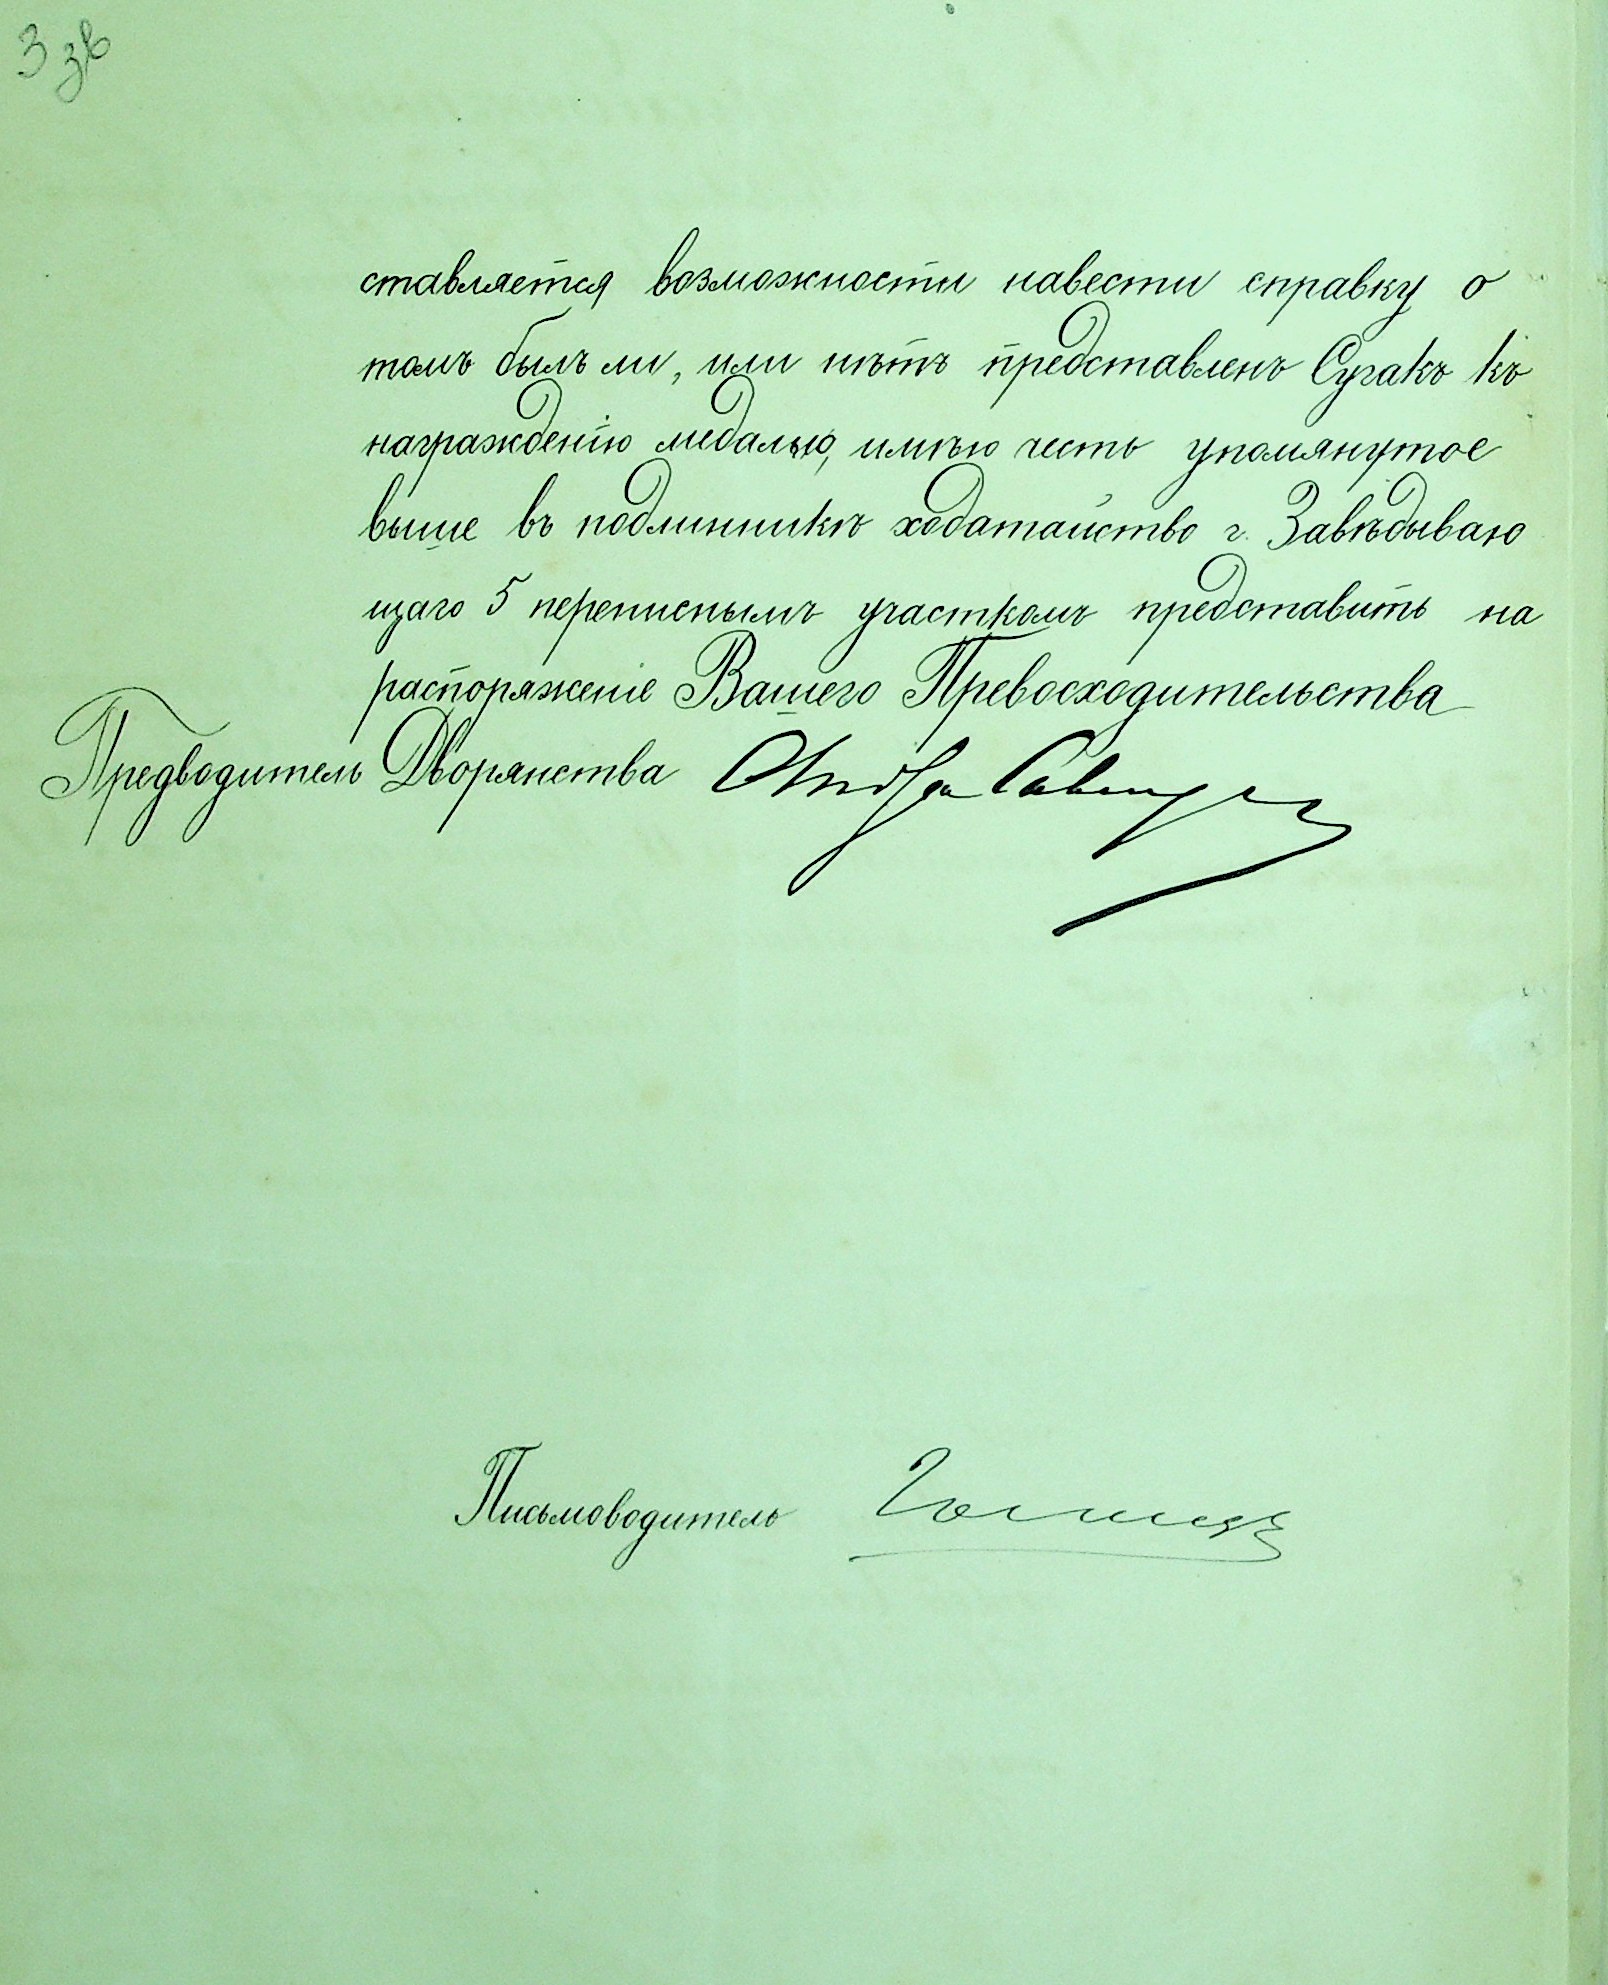 3 зв
ставляется возможности навести справку о
томъ былъ ли, или нѣтъ представленъ Сугакъ къ
награжденію медалью, имѣю честь упомянутое
выше въ подлинникѣ ходатайство г. Завѣдываю
щаго 5 переписнымъ участкомъ представить на
распоряженіе Вашего Превосходительства
Предводитель Дворянства
Письмоводитель